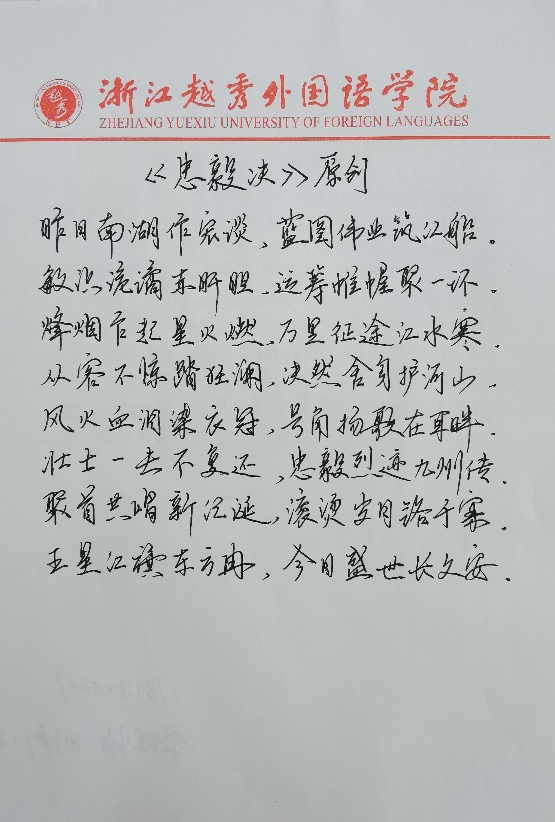 浙江越秀外国语学院
ZHEJIANG YUEXIU UNIVERSITY OF FOREIGN LANGUAGES
《忠毅决》原创
昨日南湖作宏谈，蓝图伟业筑江船。
敏思诡谲赤肝胆，运筹帷幄聚一环。
烽烟四起星火燃，万里征途江水寒。
从容不惊踏狂澜，决然舍身护河山。
风火血泪染衣冠，号角扬歌在耳畔。
壮士一去不复还，忠毅烈迹九州传。
聚首共唱新征诞，滚烫岁月
五星红旗东方冉，今日盛世长久安。